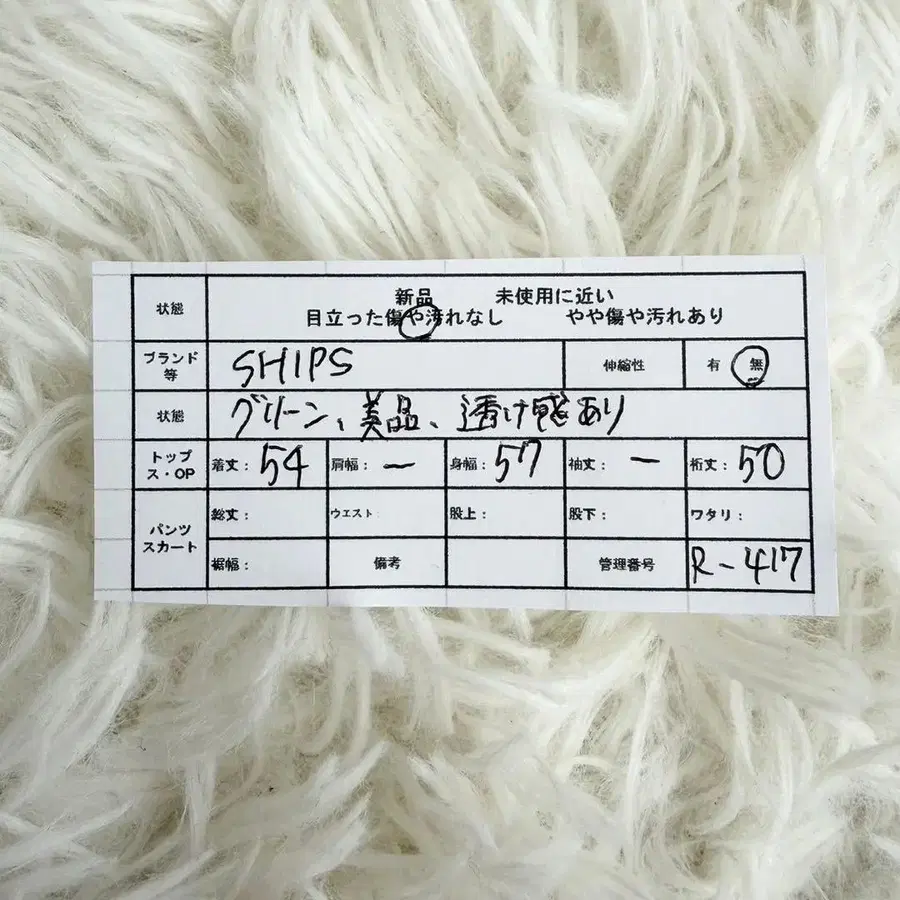 状態 新品 未使用に近い
目立った傷や汚れなし やや傷や汚れあり
ブランド等 SHIPS 伸縮性 有 無
状態 グリーン、美品、透け感あり
トップス・OP 着丈: 54 肩幅: ー 身幅: 57 袖丈: ー 裄丈: 50
パンツスカート 総丈: ウエスト: 股上: 股下: ワタリ:
裾幅: 備考 管理番号 R-417